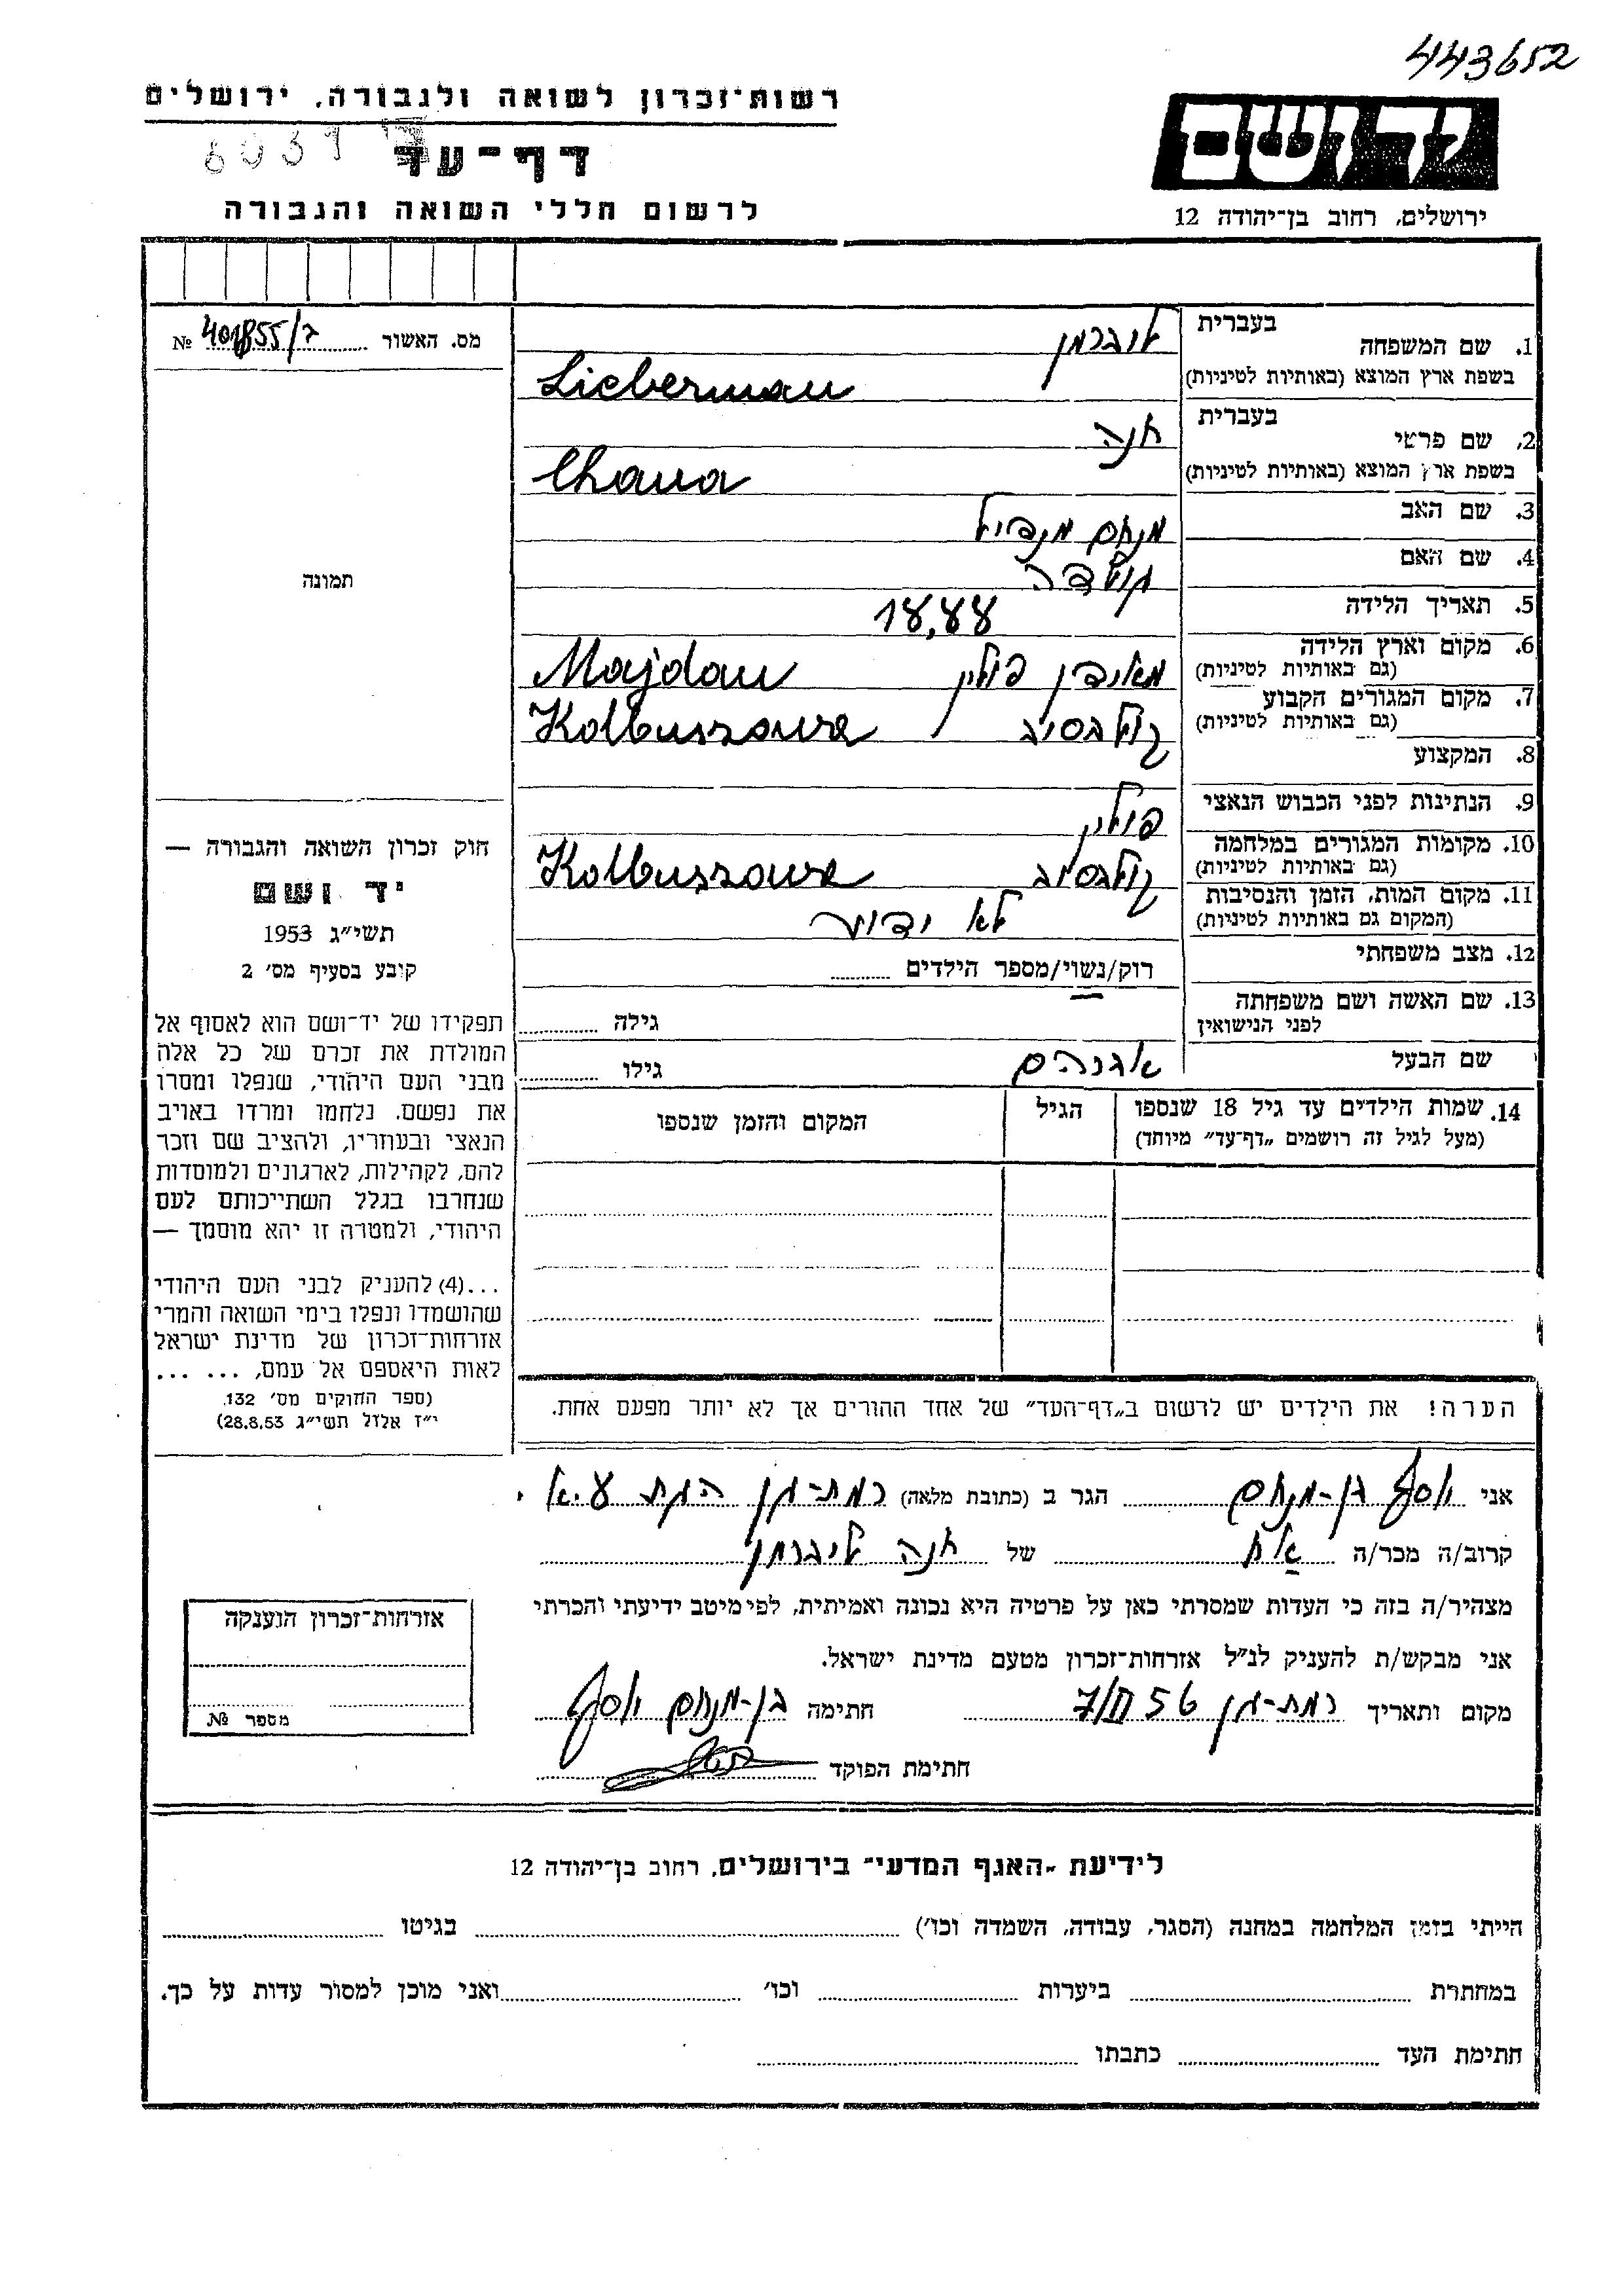 443652
רשות־זכרון לשואה ולגבורה, ירושלים
ידושם
דף־עד
לרשום חללי השואה והגבורה
ירושלים, רחוב בן־יהודה 12
בעברית
1. שם המשפחה ליברמן
בשפת ארץ המוצא (באותיות לטיניות) Lieberman
בעברית
2. שם פרטי חנה
בשפת ארץ המוצא (באותיות לטיניות) Chana
3. שם האב מנחם מנדיל
4. שם האם גולדה
5. תאריך הלידה
6. מקום וארץ הלידה מאידן פולין Majdan
(גם באותיות לטיניות)
7. מקום המגורים הקבוע קולבסוב Kolbuszowa
(גם באותיות לטיניות)
8. המקצוע
9. הנתינות לפני הכבוש הנאצי פולין
10. מקומות המגורים במלחמה קולבסוב Kolbuszowa
(גם באותיות לטיניות)
11. מקום המות, הזמן והנסיבות לא ידוע
(המקום גם באותיות לטיניות)
12. מצב משפחתי רוק/נשוי/מספר הילדים
13. שם האשה ושם משפחתה גילה
לפני הנישואין
שם הבעל אברהם גילו
14. שמות הילדים עד גיל 18 שנספו הגיל המקום והזמן שנספו
(מעל לגיל זה רושמים „דף־עד״ מיוחד)
הערה! את הילדים יש לרשום ב„דף־העד״ של אחד ההורים אך לא יותר מפעם אחת.
מס. האשור № 401855/ב
תמונה
חוק זכרון השואה והגבורה —
יד ושם
תשי״ג 1953
קובע בסעיף מס׳ 2
תפקידו של יד־ושם הוא לאסוף אל
המולדת את זכרם של כל אלה
מבני העם היהודי, שנפלו ומסרו
את נפשם. נלחמו ומרדו באויב
הנאצי ובעוזריו, ולהציב שם וזכר
להם, לקהילות, לארגונים ולמוסדות
שנחרבו בגלל השתייכותם לעם
היהודי, ולמטרה זו יהא מוסמך —
...(4) להעניק לבני העם היהודי
שהושמדו ונפלו בימי השואה והמרי
אזרחות־זכרון של מדינת ישראל
לאות היאספם אל עמם, ... ...
(ספר החוקים מס׳ 132,
י״ז אלול תשי״ג 28.8.53)
אני יוסף בן־מנחם הגר ב (כתובת מלאה) רמת־גן
קרוב/ה מכר/ה אח של חנה ליברמן
מצהיר/ה בזה כי העדות שמסרתי כאן על פרטיה היא נכונה ואמיתית, לפי מיטב ידיעתי והכרתי
אני מבקש/ת להעניק לנ״ל אזרחות־זכרון מטעם מדינת ישראל.
מקום ותאריך רמת־גן חתימה בן־מנחם יוסף
חתימת הפוקד
אזרחות־זכרון הוענקה
מספר №
לידיעת „האגף המדעי״ בירושלים, רחוב בן־יהודה 12
הייתי בזמן המלחמה במחנה (הסגר, עבודה, השמדה וכו׳) בגיטו
במחתרת ביערות וכו׳ ואני מוכן למסור עדות על כך.
חתימת העד כתבתו